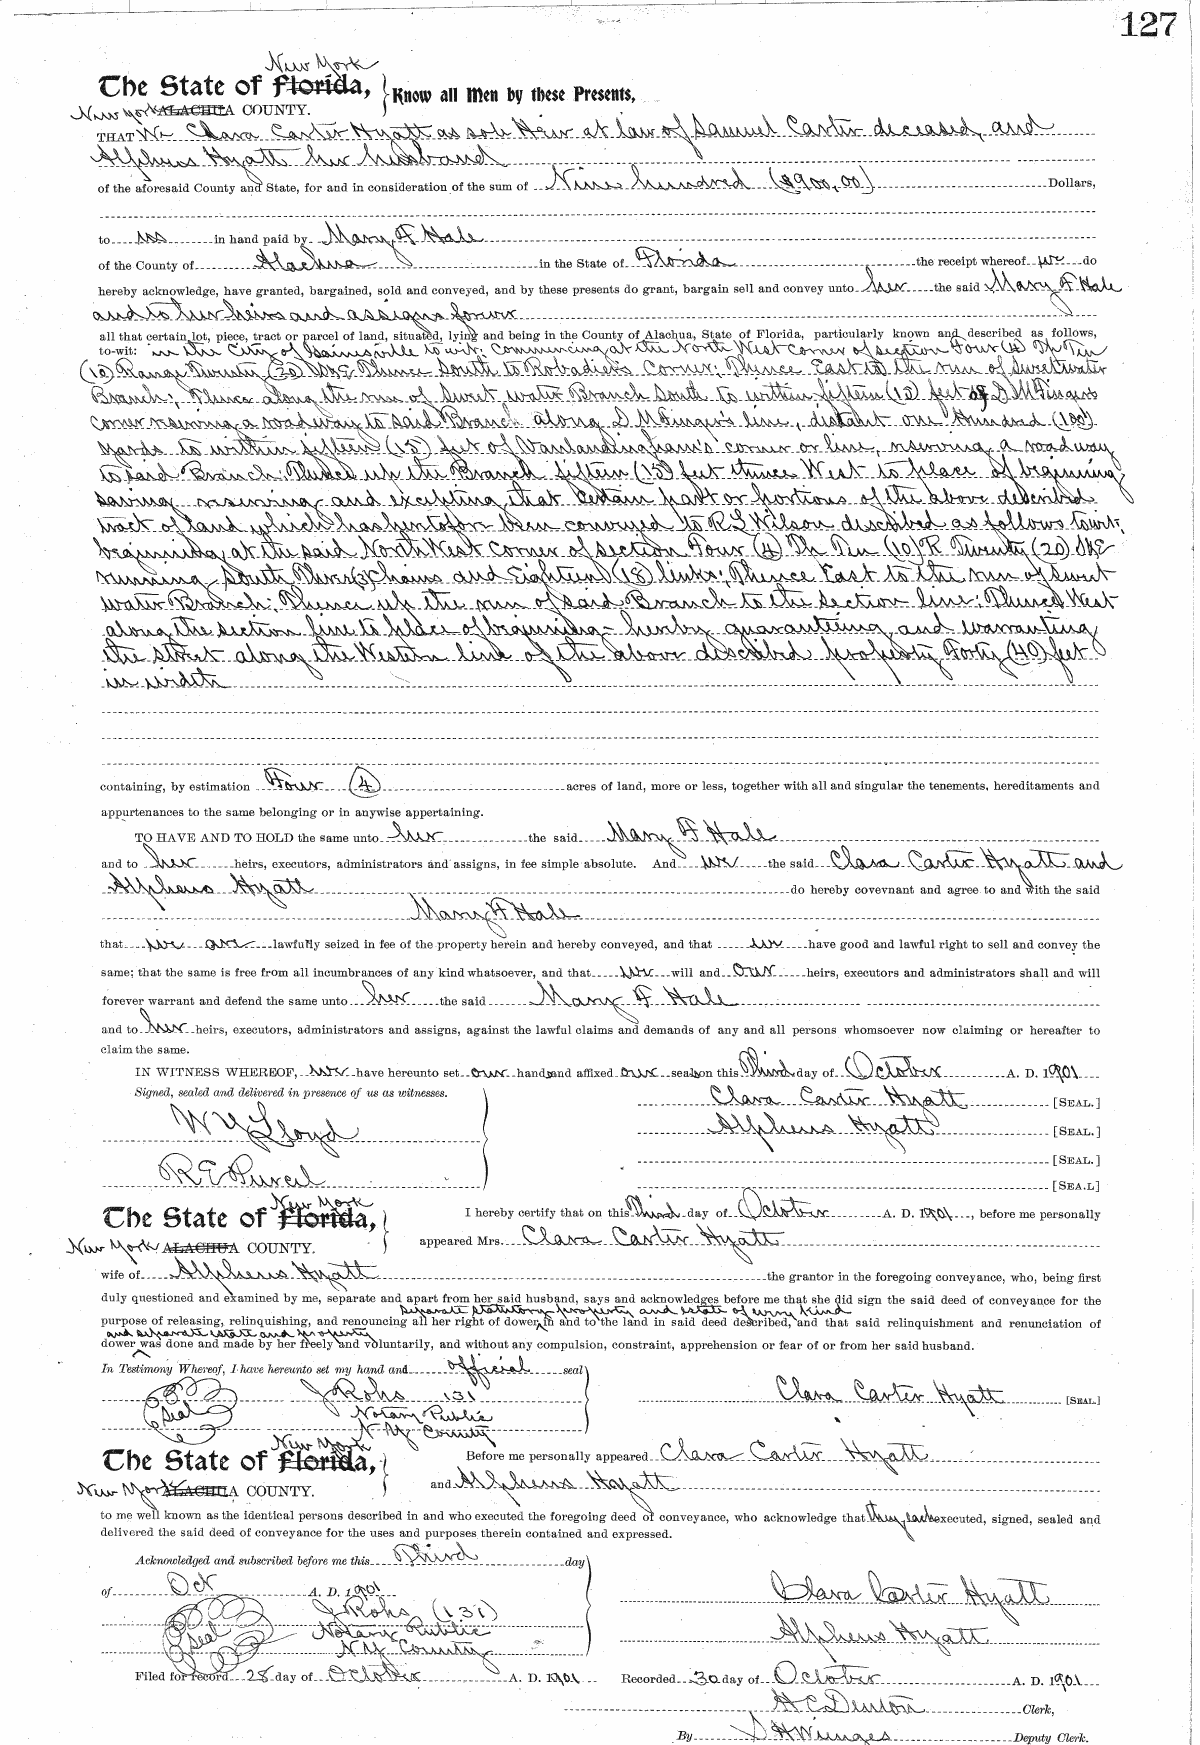 127
New York
The State of Florida,
New York ALACHUA COUNTY.
Know all Men by these Presents,
THAT We Clara Carter Hyatt as sole Heir at law of Samuel Carter deceased, and
Alpheus Hyatt her husband
of the aforesaid County and State, for and in consideration of the sum of Nine hundred ($900.00) Dollars,
to us in hand paid by Mary F Hale
of the County of Alachua in the State of Florida the receipt whereof we do
hereby acknowledge, have granted, bargained, sold and conveyed, and by these presents do grant, bargain sell and convey unto her the said Mary F Hale
and to her heirs and assigns forever
all that certain lot, piece, tract or parcel of land, situated, lying and being in the County of Alachua, State of Florida, particularly known and described as follows,
to-wit: in the City of Gainesville to wit: Commencing at the North West corner of section Four (4) Tp Ten
(10) Range Twenty (20) S&E Thence South to Robadies Corner; Thence East to the run of Sweetwater
Branch; Thence along the run of Sweet water Branch South to within fifteen (15) feet of D McFingers
corner reserving a roadway to said Branch along D McFinger's line, distant one Hundred (100)
yards to within fifteen (15) feet of Vanlandingham's corner or line, reserving a roadway
to said Branch. Thence up the Branch fifteen (15) feet thence West to place of beginning
saving reserving and excepting that certain part or portions of the above described
tract of land which has heretofore been conveyed to R S Wilson described as follows to wit:
beginning at the said North West corner of section Four (4) Tp Ten (10) R Twenty (20) S&E
running South Three (3) Chains and Eighteen (18) links; Thence East to the run of Sweet
water Branch; Thence up the run of said Branch to the section line; Thence West
along the section line to place of beginning - hereby guaranteeing and warranting
the street along the Western line of the above described property Forty (40) feet
in width
containing, by estimation Four (4) acres of land, more or less, together with all and singular the tenements, hereditaments and
appurtenances to the same belonging or in anywise appertaining.
TO HAVE AND TO HOLD the same unto her the said Mary F Hale
and to her heirs, executors, administrators and assigns, in fee simple absolute. And we the said Clara Carter Hyatt and
Alpheus Hyatt do hereby covevnant and agree to and with the said
Mary F Hale
that we are lawfully seized in fee of the property herein and hereby conveyed, and that we have good and lawful right to sell and convey the
same; that the same is free from all incumbrances of any kind whatsoever, and that we will and our heirs, executors and administrators shall and will
forever warrant and defend the same unto her the said Mary F Hale
and to her heirs, executors, administrators and assigns, against the lawful claims and demands of any and all persons whomsoever now claiming or hereafter to
claim the same.
IN WITNESS WHEREOF, we have hereunto set our hands and affixed our seals on this Third day of October A. D. 1901
Signed, sealed and delivered in presence of us as witnesses.
Clara Carter Hyatt [SEAL.]
W Y Lloyd
Alpheus Hyatt [SEAL.]
[SEAL.]
R E Purcel
[SEA.L]
New York
The State of Florida,
New York ALACHUA COUNTY.
I hereby certify that on this Third day of October A. D. 1901, before me personally
appeared Mrs. Clara Carter Hyatt
wife of Alpheus Hyatt the grantor in the foregoing conveyance, who, being first
duly questioned and examined by me, separate and apart from her said husband, says and acknowledges before me that she did sign the said deed of conveyance for the
separate statutory property and estate of every kind
purpose of releasing, relinquishing, and renouncing all her right of dower, in and to the land in said deed described, and that said relinquishment and renunciation of
and separate estate and property
dower was done and made by her freely and voluntarily, and without any compulsion, constraint, apprehension or fear of or from her said husband.
In Testimony Whereof, I have hereunto set my hand and official seal
Seal
J Rohs 131
Notary Public
N.Y. County
Clara Carter Hyatt [SEAL]
New York
The State of Florida,
New York ALACHUA COUNTY.
Before me personally appeared Clara Carter Hyatt
and Alpheus Hyatt
to me well known as the identical persons described in and who executed the foregoing deed of conveyance, who acknowledge that they each executed, signed, sealed and
delivered the said deed of conveyance for the uses and purposes therein contained and expressed.
Acknowledged and subscribed before me this Third day
of Oct A. D. 1901
Seal
J Rohs (131)
Notary Public
N.Y. County
Clara Carter Hyatt
Alpheus Hyatt
Filed for record 28 day of October A. D. 1901 Recorded 30 day of October A. D. 1901
H C Denton Clerk,
By S H Wienges Deputy Clerk.